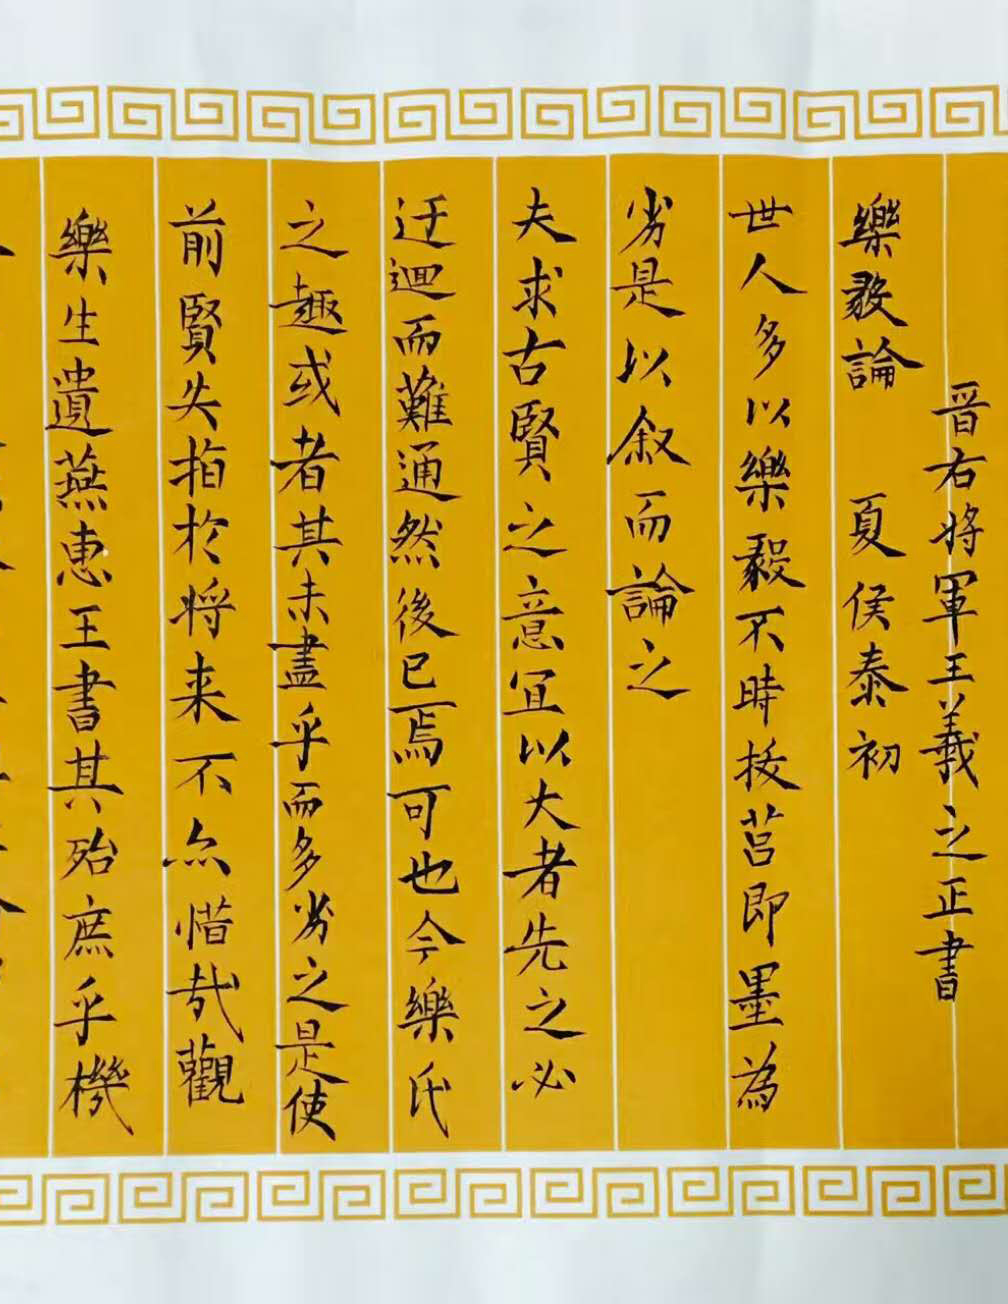 晉右将軍王羲之正書
樂毅論 夏侯泰初
世人多以樂毅不時拔莒即墨為
劣是以叙而論之
夫求古賢之意宜以大者先之必
迂迴而難通然後已焉可也今樂氏
之趣或者其未盡乎而多劣之是使
前賢失指於将来不亦惜哉觀
樂生遺燕惠王書其殆庶乎機